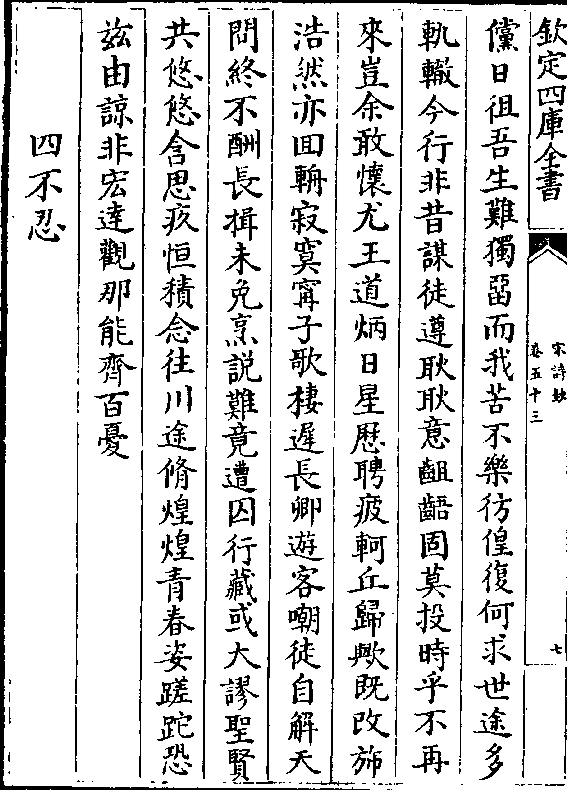 欽定四庫全書
宋詩鈔
卷五十三
七
儻日徂吾生難獨留而我苦不樂彷徨復何求世途多
軌轍今行非昔謀徒遵耿耿意齟齬固莫投時乎不再
來豈余敢懷尤王道炳日星歷聘疲軻丘歸歟既改斾
浩然亦回輈寂寞甯子歌棲遲長卿遊客嘲徒自解天
問終不酬長揖未免烹說難竟遭囚行藏或大謬聖賢
共悠悠含思疚恒積念往川途脩煌煌青春姿蹉跎恐
兹由諒非宏達觀那能齊百憂
四不忍